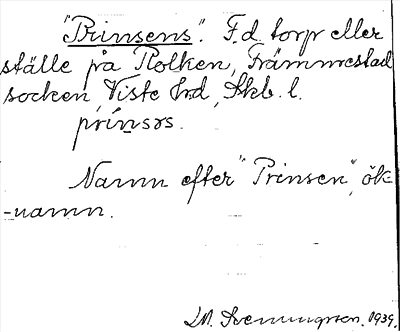 "Prinsens". F.d. torp eller
ställe på Rolken, Främmestad
socken, Viste hrd, Skb. l.
prinsəs.
Namn efter "Prinsen", ök-
-namn.
1939.